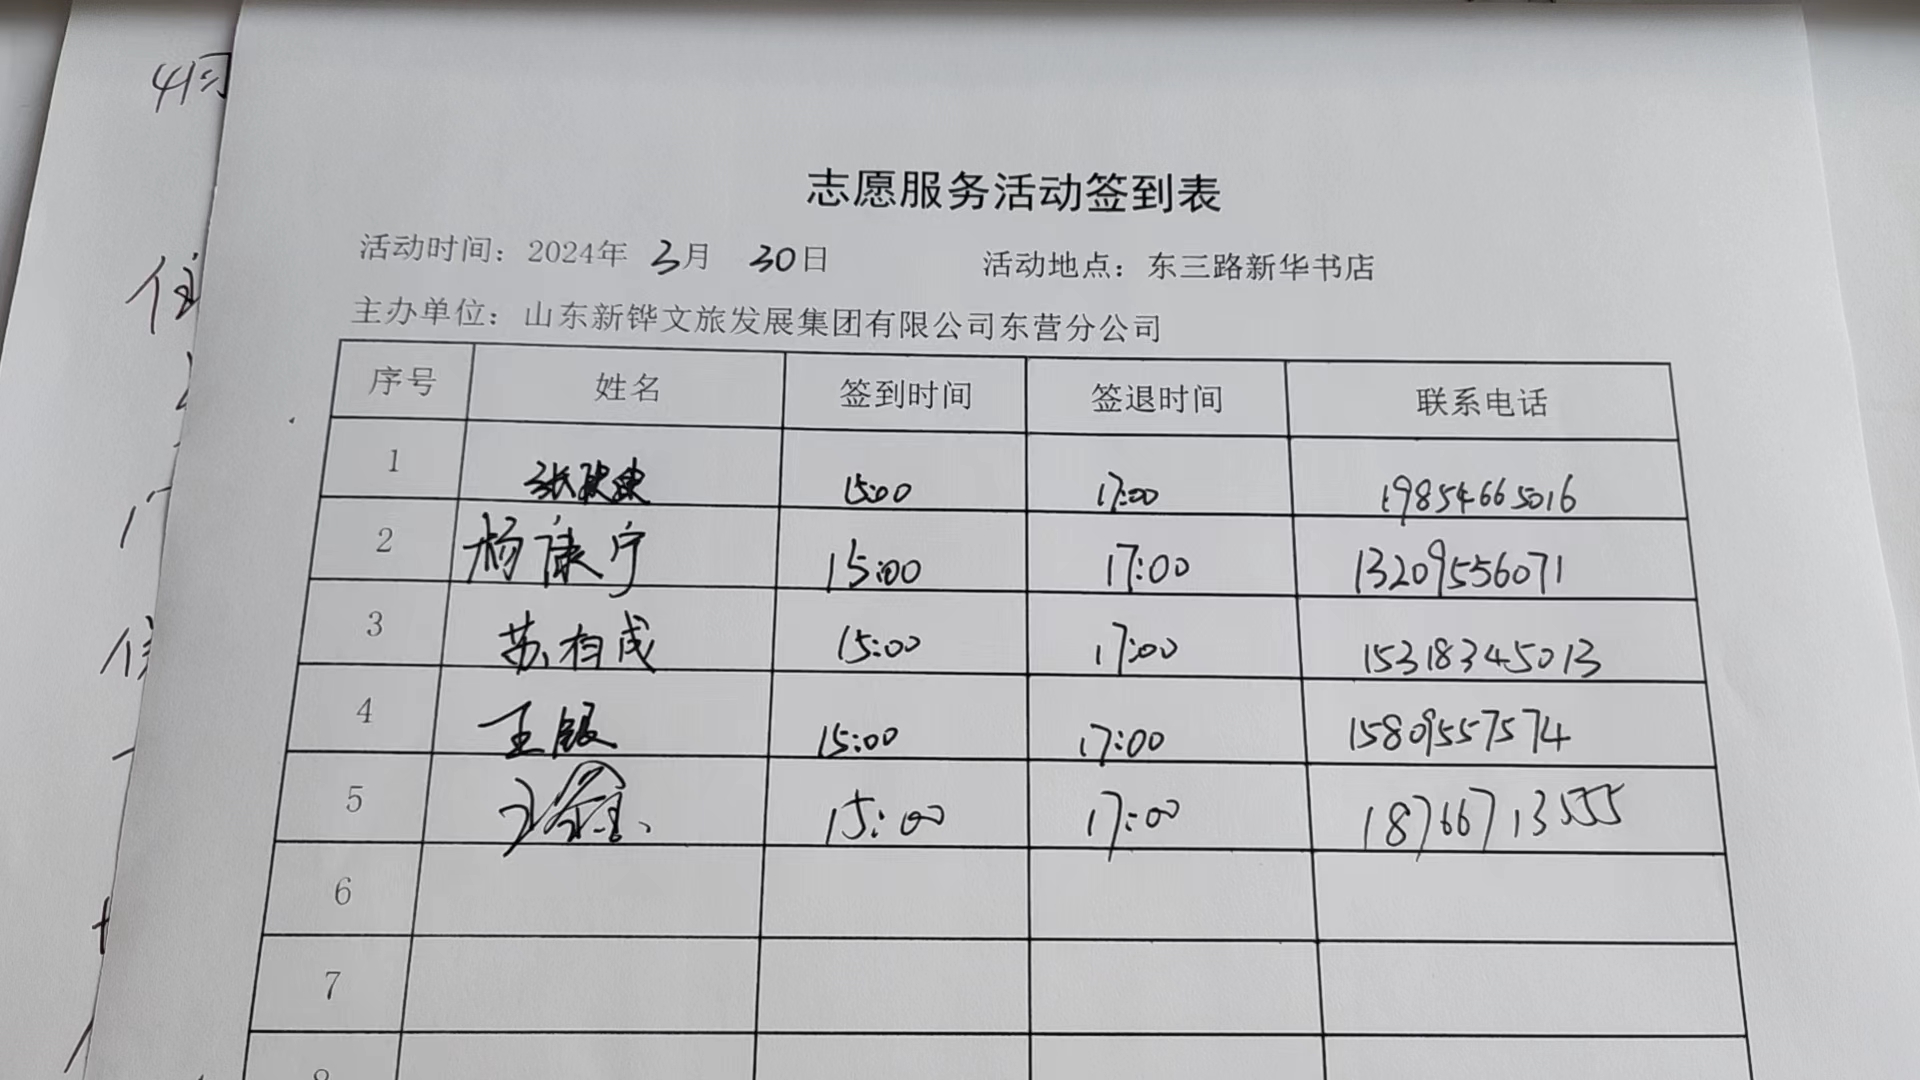 志愿服务活动签到表
活动时间：2024年 3月 30日 活动地点：东三路新华书店
主办单位：山东新铧文旅发展集团有限公司东营分公司
序号 姓名 签到时间 签退时间 联系电话
1 张 15:00 17:00 19854665016
2 杨康宁 15:00 17:00 13209556071
3 苏有成 15:00 17:00 15318345013
4 王银 15:00 17:00 15809557574
5 15:00 17:00 18766713555
6
7